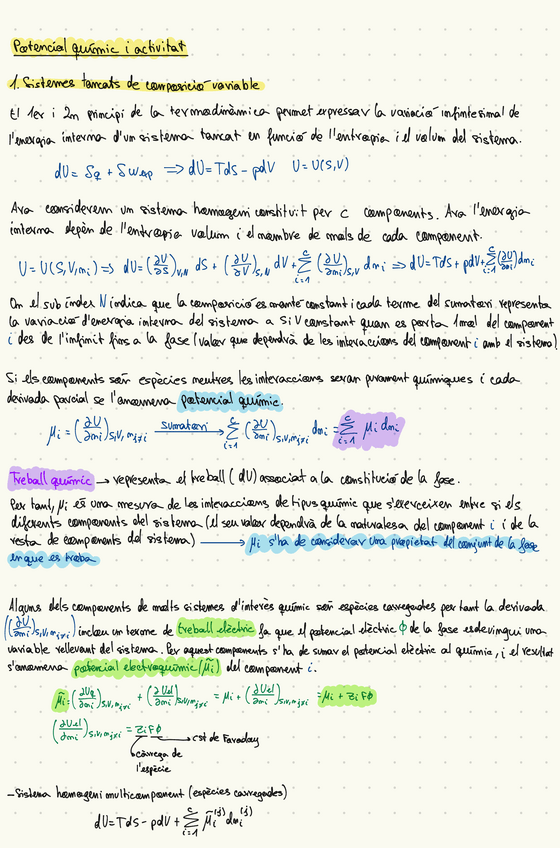 Potencial químic i activitat
1. Sistemes tancats de composició variable
El 1er i 2n principi de la termodinàmica permet expressar la variació infinitesimal de
l'energia interna d'un sistema tancat en funció de l'entropia i el volum del sistema.
dU = δq + δw_exp ⇒ dU = TdS - pdV   U = U(S,V)
Ara considerem un sistema homogeni constituït per c components. Ara l'energia
interna depèn de l'entropia volum i el nombre de mols de cada component.
U = U(S,V,n_i) ⇒ dU = (∂U/∂S)_{V,N} dS + (∂U/∂V)_{S,N} dV + Σ_{i=1}^{c} (∂U/∂n_i)_{S,V} dn_i ⇒ dU = TdS + pdV + Σ_{i=1}^{c} (∂U/∂n_i) dn_i
On el sub índex N indica que la composició es manté constant i cada terme del sumatori representa
la variació d'energia interna del sistema a S i V constant quan es porta 1 mol del component
i des de l'infinit fins a la fase (valor que dependrà de les interaccions del component i amb el sistema)
Si els components són espècies neutres les interaccions seran purament químiques i cada
derivada parcial se l'anomena potencial químic.
μ_i = (∂U/∂n_i)_{S,V,n_{j≠i}} —sumatori→ Σ_{i=1}^{c} (∂U/∂n_i)_{S,V,n_{j≠i}} dn_i = Σ_{i=1}^{c} μ_i dn_i
Treball químic → representa el treball (dU) associat a la constitució de la fase.
Per tant, μ_i és una mesura de les interaccions de tipus químic que s'exerceixen entre si els
diferents components del sistema (el seu valor dependrà de la naturalesa del component i i de la
resta de components del sistema) → μ_i s'ha de considerar una propietat del conjunt de la fase
en que es troba
Alguns dels components de molts sistemes d'interès químic són espècies carregades per tant la derivada
((∂U/∂n_i)_{S,V,n_{j≠i}}) inclou un terme de treball elèctric fa que el potencial elèctric ϕ de la fase esdevingui una
variable rellevant del sistema. Per aquest components s'ha de sumar el potencial elèctric al químic, i el resultat
s'anomena potencial electroquímic (μ̃_i) del component i.
μ̃_i = (∂U_q/∂n_i)_{S,V,n_{j≠i}} + (∂U_el/∂n_i)_{S,V,n_{j≠i}} = μ_i + (∂U_el/∂n_i)_{S,V,n_{j≠i}} = μ_i + z_iFϕ
(∂U_el/∂n_i)_{S,V,n_{j≠i}} = z_iFϕ
→ cst de Faraday
càrrega de
l'espècie
- Sistema homogeni multicomponent (espècies carregades)
dU = TdS - pdV + Σ_{i=1}^{c} μ̃_i^{(j)} dn_i^{(j)}